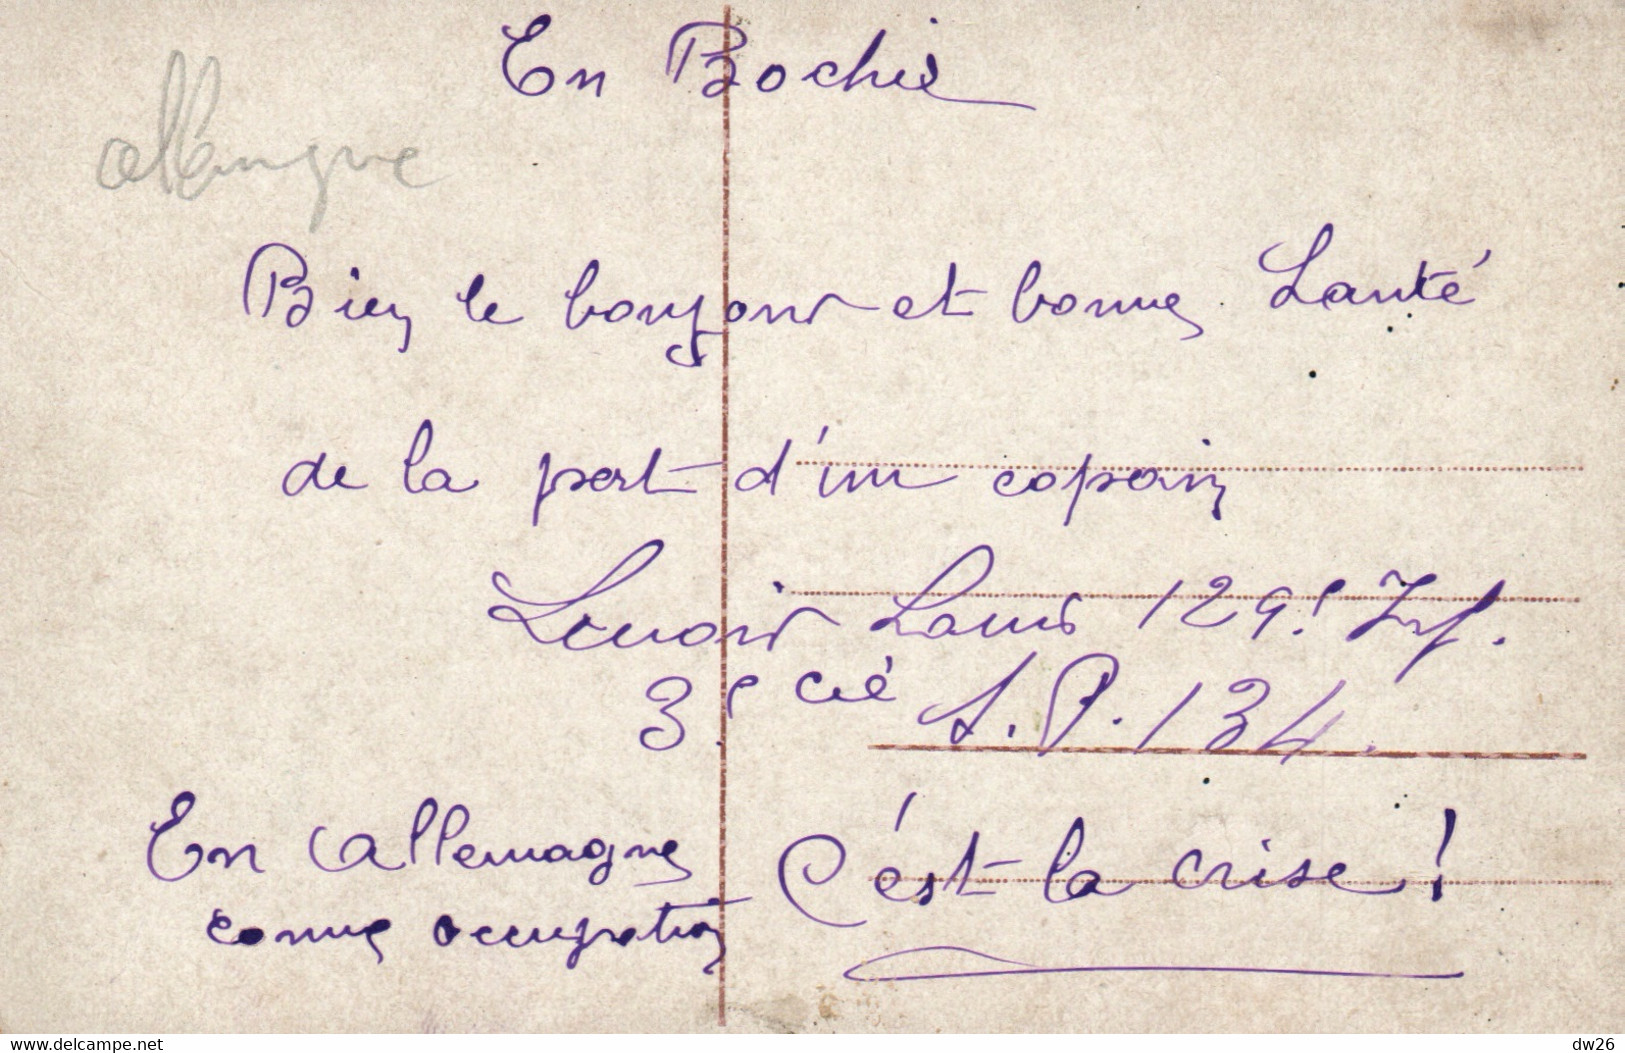 En Bochie
allemgne
Bien le bonjour et bonne Santé
de la part d'un copain
Lenoir Louis 129e Inf.
3e Cie S.P. 134.
En Allemagne
comme occupation
C'est la crise!
www.delcampe.net
dw26